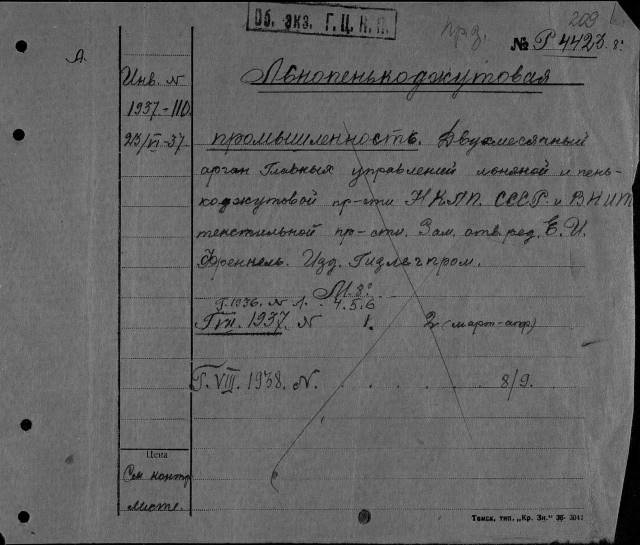 Об. экз. Г. Ц. К. П.
209
№ Р 4423 8°
А.
Инв. N
1937-110
23/VI-37
Льнопенькоджутовая
промышленность. Двухмесячный
орган Главных управлений льняной и пень-
коджутовой пр-сти НКЛП. СССР и ВНИТ
текстильной пр-сти. Зам. отв. ред. Е. И.
Френкель. Изд. Гизлегпром.
М. 8°
Г. 1936. N 1. 4.5.6
Г. VII. 1937. N 1. 2 (март-апр)
Г. VIII. 1938. N. . . . . 8/9.
Цена
См. контр
листе.
Томск, тип. „Кр. Зн." 36- 3041